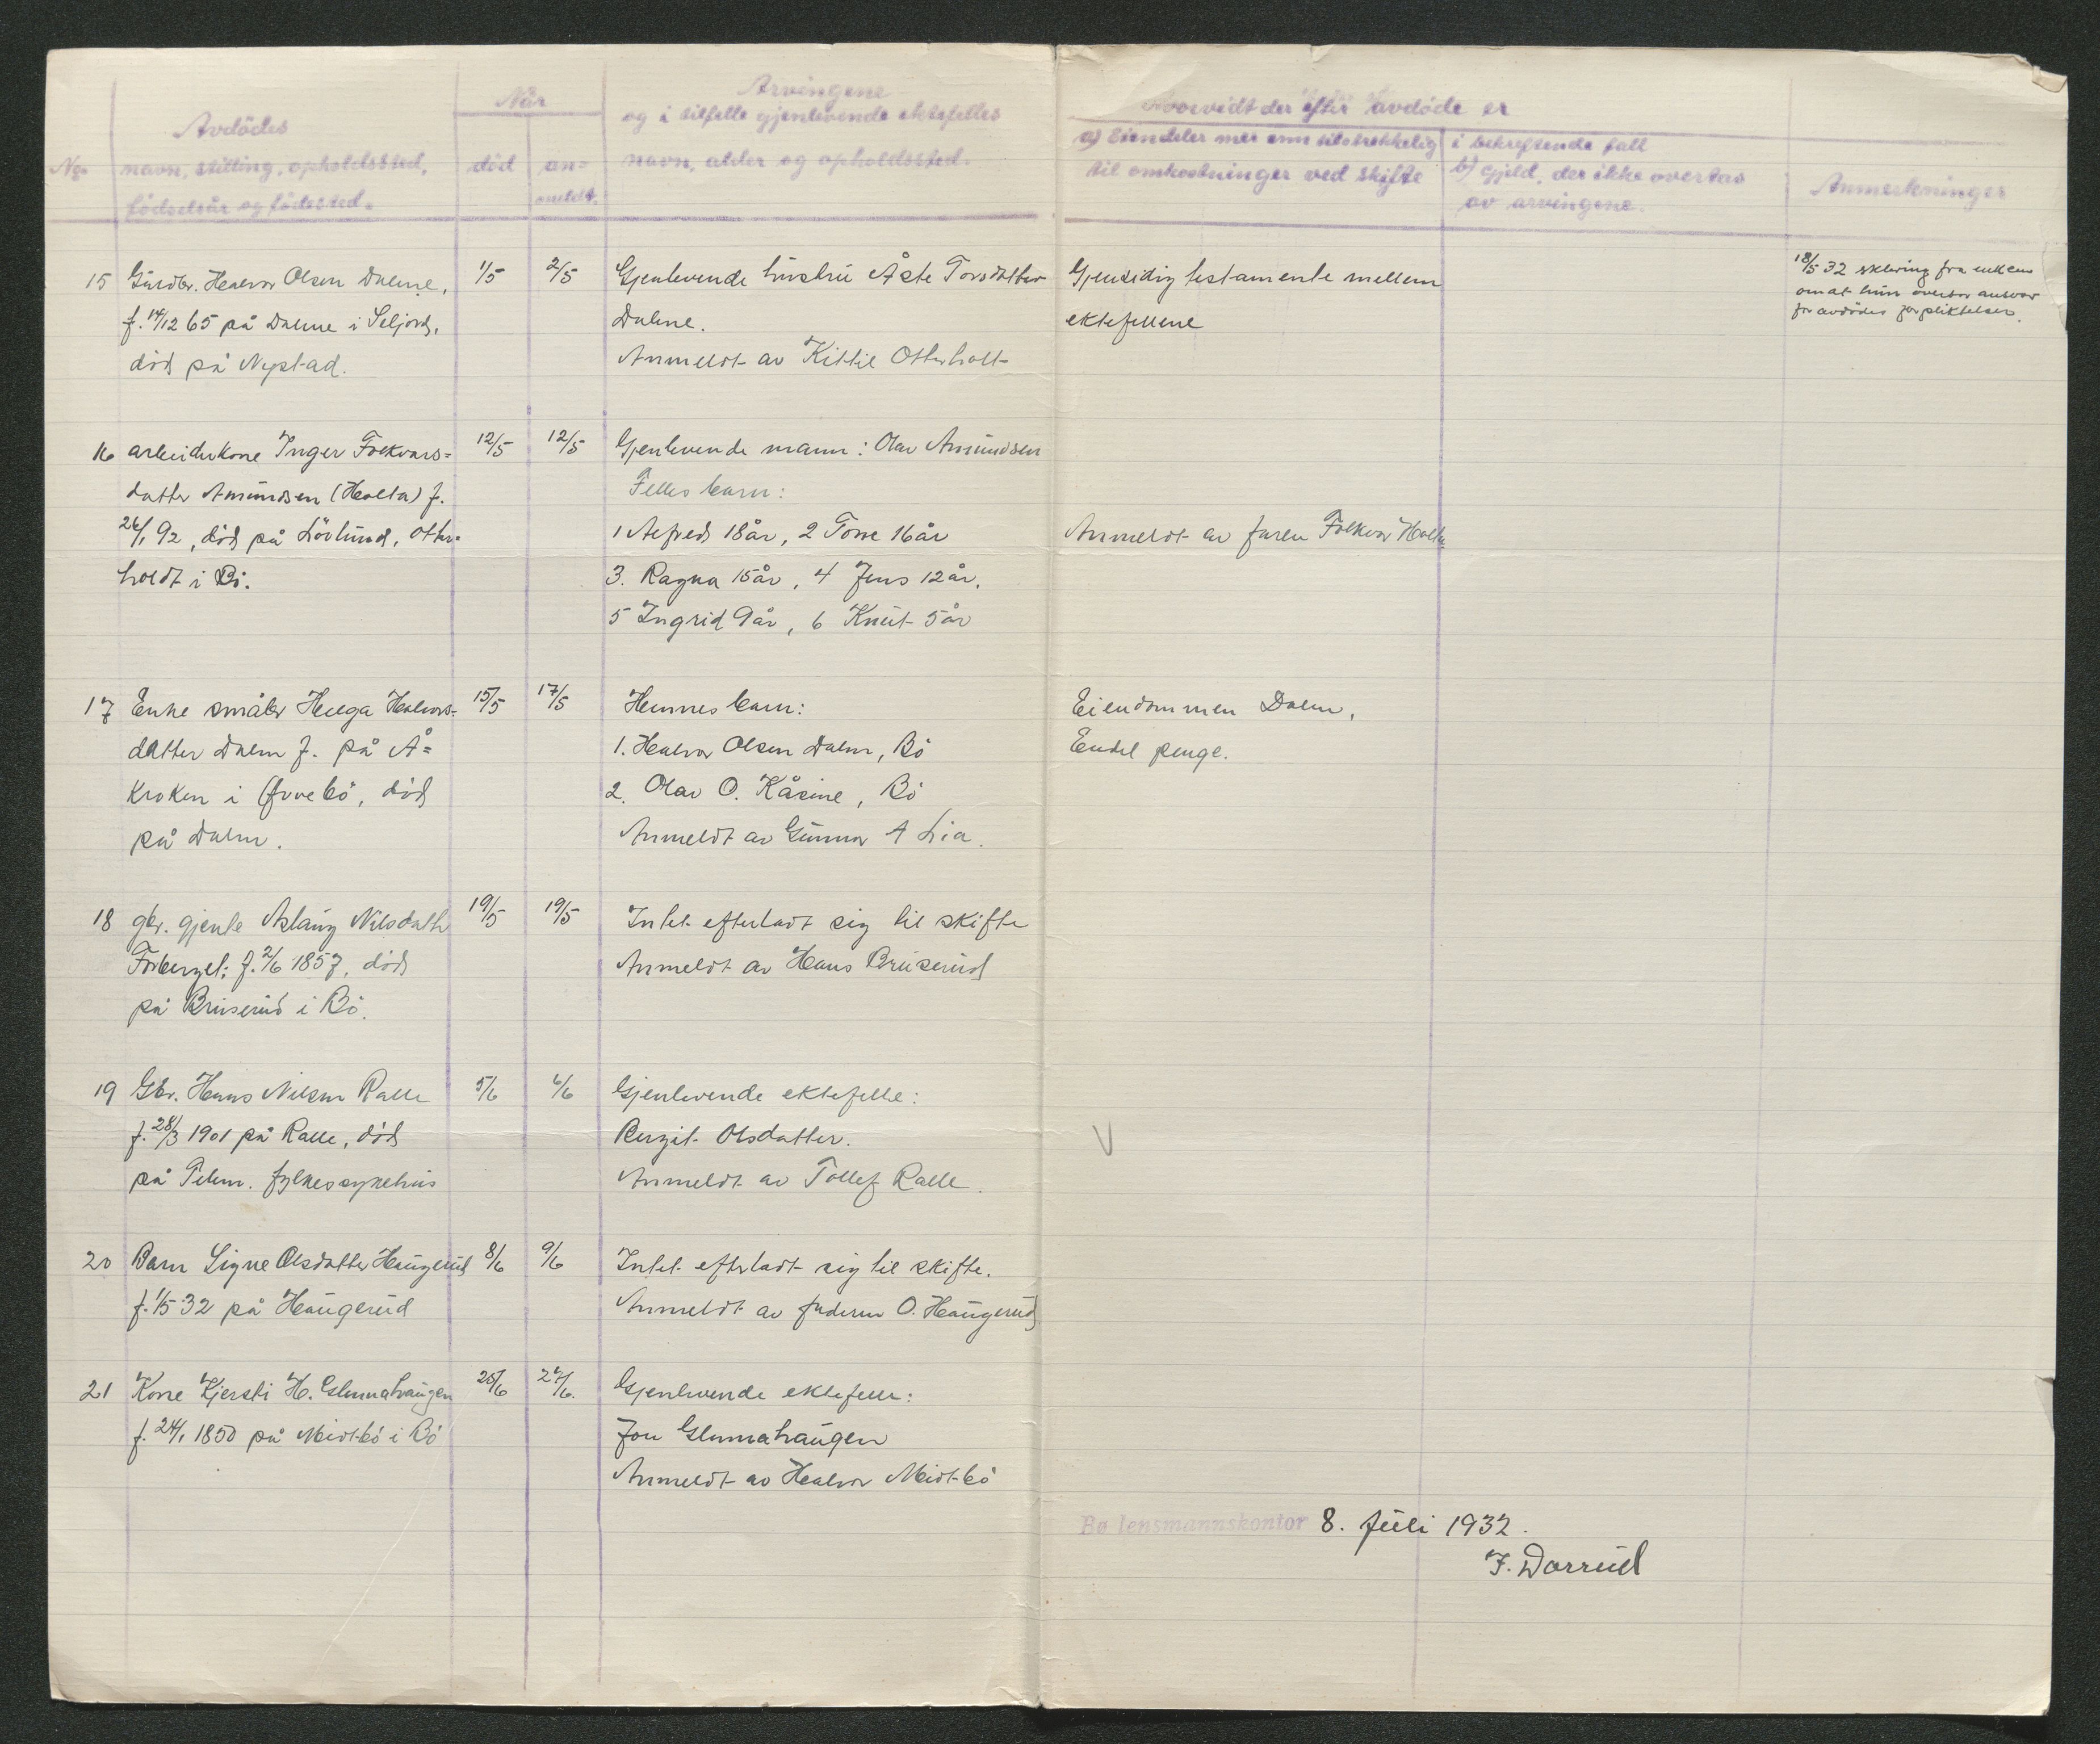 Avdødes
No. navn, stilling, opholdssted,
fødselsår og fødested.
Når
død
an-
meldt.
Arvingene
og i tilfelle gjenlevende ektefelles
navn, alder og opholdssted.
Hvorvidt der efter avdøde er
a) Eiendeler mer enn tilstrekkelig
til omkostninger ved skifte
i bekreftende fall
b) gjeld, der ikke overtas
av arvingene.
Anmerkninger
15 Gårdbr. Halvor Olsen Dalene,
f. 14/12 65 på Dalene i Seljord,
død på Nystad.
1/5 2/5
Gjenlevende hustru Åste Torsdatter
Dalene.
Anmeldt av Kittil Otterholt
Gjensidig testamente mellem
ektefellene
18/5 32 erklæring fra enken
om at hun overtar ansvar
for avdødes forpliktelser.
16 arbeiderkone Inger Folkvars=
datter Amundsen (Holta) f.
26/1 92, død på Lövlund, Otter=
holdt i Bö.
12/5 12/5
Gjenlevende mann: Olav Amundsen
Felles barn:
1 Alfred 18 år, 2 Tone 16 år
3. Ragna 15 år, 4 Jens 12 år,
5 Ingrid 9 år, 6 Knut 5 år
Anmeldt av faren Folkvar Holta
17 Enke småbr Helga Halvors=
datter Dalen f. på Å=
kroken i Övrebö, död
på Dalen.
15/5 17/5
Hennes barn:
1. Halvor Olsen Dalen, Bö
2. Olav O. Kåsine, Bö
Anmeldt av Gunnar A Lia.
Eiendommen Dalen,
Endel penge.
18 gbr. gjente Aslaug Nilsdatter
Forberget: f. 2/6 1857, död
på Bruserud i Bö.
19/5 19/5
Intet efterladt sig til skifte
Anmeldt av Hans Bruserud
19 Gbr. Hans Nilsen Ralle
f. 28/3 1901 på Ralle, död
på Telem. fylkessykehus
5/6 6/6
Gjenlevende ektefelle:
Bergit Olsdatter.
Anmeldt av Tollef Ralle.
20 Barn Signe Olsdatter Haugerud
f. 1/5 32 på Haugerud
8/6 9/6
Intet efterladt sig til skifte.
Anmeldt av faderen O. Haugerud
21 Kone Kjersti H. Glennahaugen
f. 24/1 1850 på Meidtbö i Bö
25/6 27/6.
Gjenlevende ektefelle:
Jon Glennahaugen
Anmeldt av Halvor Meidtbö
Bø lensmannskontor 8. Juli 1932.
F. Darrud